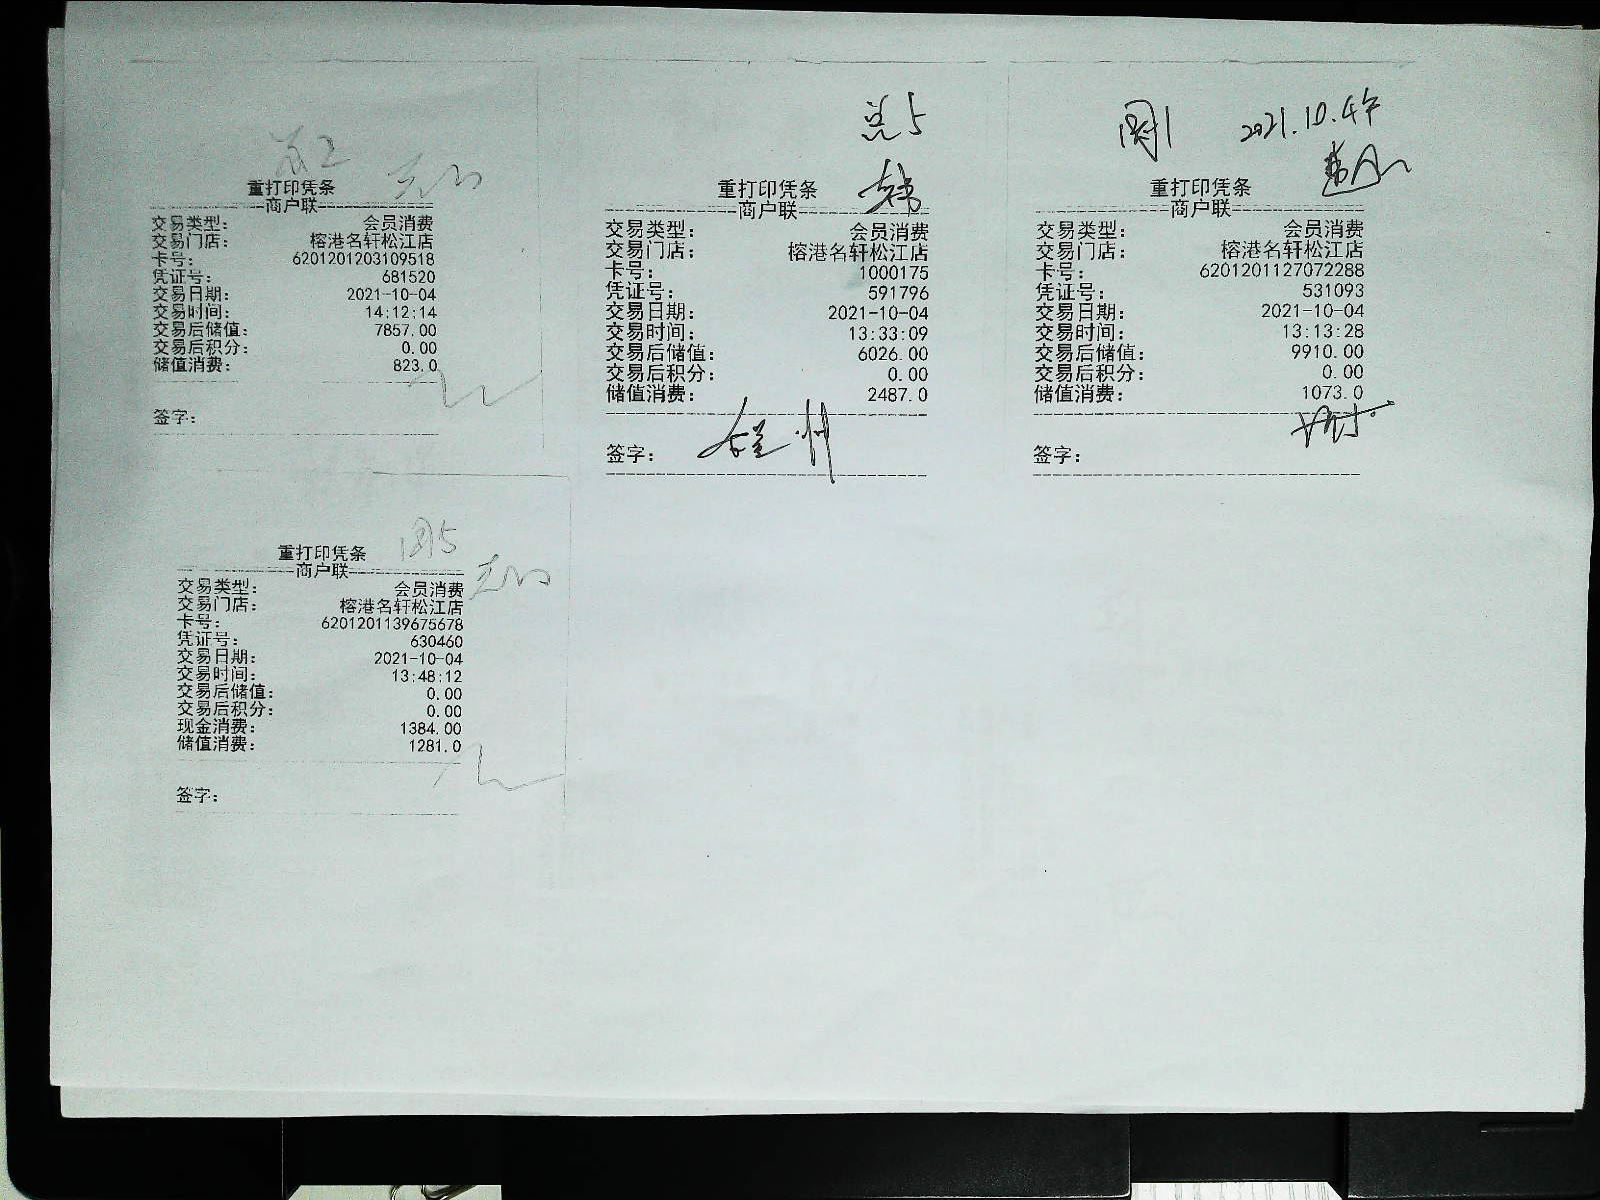 重打印凭条
商户联
交易类型： 会员消费
交易门店： 榕港名轩松江店
卡号： 6201201203109518
凭证号： 681520
交易日期： 2021-10-04
交易时间： 14:12:14
交易后储值： 7857.00
交易后积分： 0.00
储值消费： 823.0
签字：
总5
重打印凭条
商户联
交易类型： 会员消费
交易门店： 榕港名轩松江店
卡号： 1000175
凭证号： 591796
交易日期： 2021-10-04
交易时间： 13:33:09
交易后储值： 6026.00
交易后积分： 0.00
储值消费： 2487.0
签字：
2021.10.4午
重打印凭条
商户联
交易类型： 会员消费
交易门店： 榕港名轩松江店
卡号： 6201201127072288
凭证号： 531093
交易日期： 2021-10-04
交易时间： 13:13:28
交易后储值： 9910.00
交易后积分： 0.00
储值消费： 1073.0
签字：
重打印凭条
商户联
交易类型： 会员消费
交易门店： 榕港名轩松江店
卡号： 6201201139675678
凭证号： 630460
交易日期： 2021-10-04
交易时间： 13:48:12
交易后储值： 0.00
交易后积分： 0.00
现金消费： 1384.00
储值消费： 1281.0
签字：